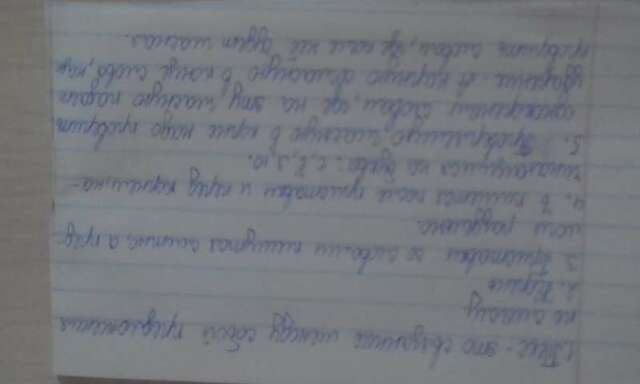 1. Текс - это связанные между собой предложения
по смыслу
2. Корень
3. Приставки со словами пишутся слитно, а пред-
логи раздельно
4. ъ пишется после приставки и перед корнем, на-
чинающимся на буквы: е, ё, я, ю.
5. Проверяемую гласную в корне надо проверить
однокоренным словом, где на эту гласную падает
ударение. А парную согласную в конце слова, надо
проверить словом, где после неё будет гласная.